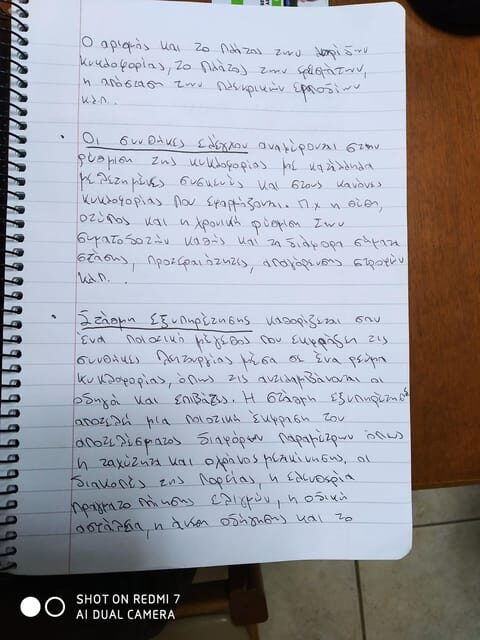 Ο αριθμός και το πλάτος των λωρίδων
κυκλοφορίας, το πλάτος των ερεισμάτων,
η απόσταση των πλευρικών εμποδίων
κ.λ.π..
• Οι συνθήκες ελέγχου αναφέρονται στην
ρύθμιση της κυκλοφορίας με κατάλληλα
μελετημένες συσκευές και στους κανόνες
κυκλοφορίας που εφαρμόζονται. Π.χ η θέση,
ο τύπος και η χρονική ρύθμιση των
σηματοδοτών καθώς και τα διάφορα σήματα
στάσης, προτεραιότητες, απαγόρευσης στροφών
κ.λ.π..
• Στάθμη εξυπηρέτησης καθορίζεται σαν
ένα ποιοτικό μέγεθος που εκφράζει τις
συνθήκες λειτουργίας μέσα σε ένα ρεύμα
κυκλοφορίας, όπως τις αντιλαμβάνονται οι
οδηγοί και επιβάτες. Η στάθμη εξυπηρέτησης
αποτελεί μια ποιοτική έκφραση του
αποτελέσματος διαφόρων παραμέτρων όπως
η ταχύτητα και ο χρόνος μετακίνησης, οι
διακοπές της πορείας, η ελευθερία
πραγματοποίησης ελιγμών, η οδική
ασφάλεια, η άνεση οδήγησης και το
SHOT ON REDMI 7
AI DUAL CAMERA